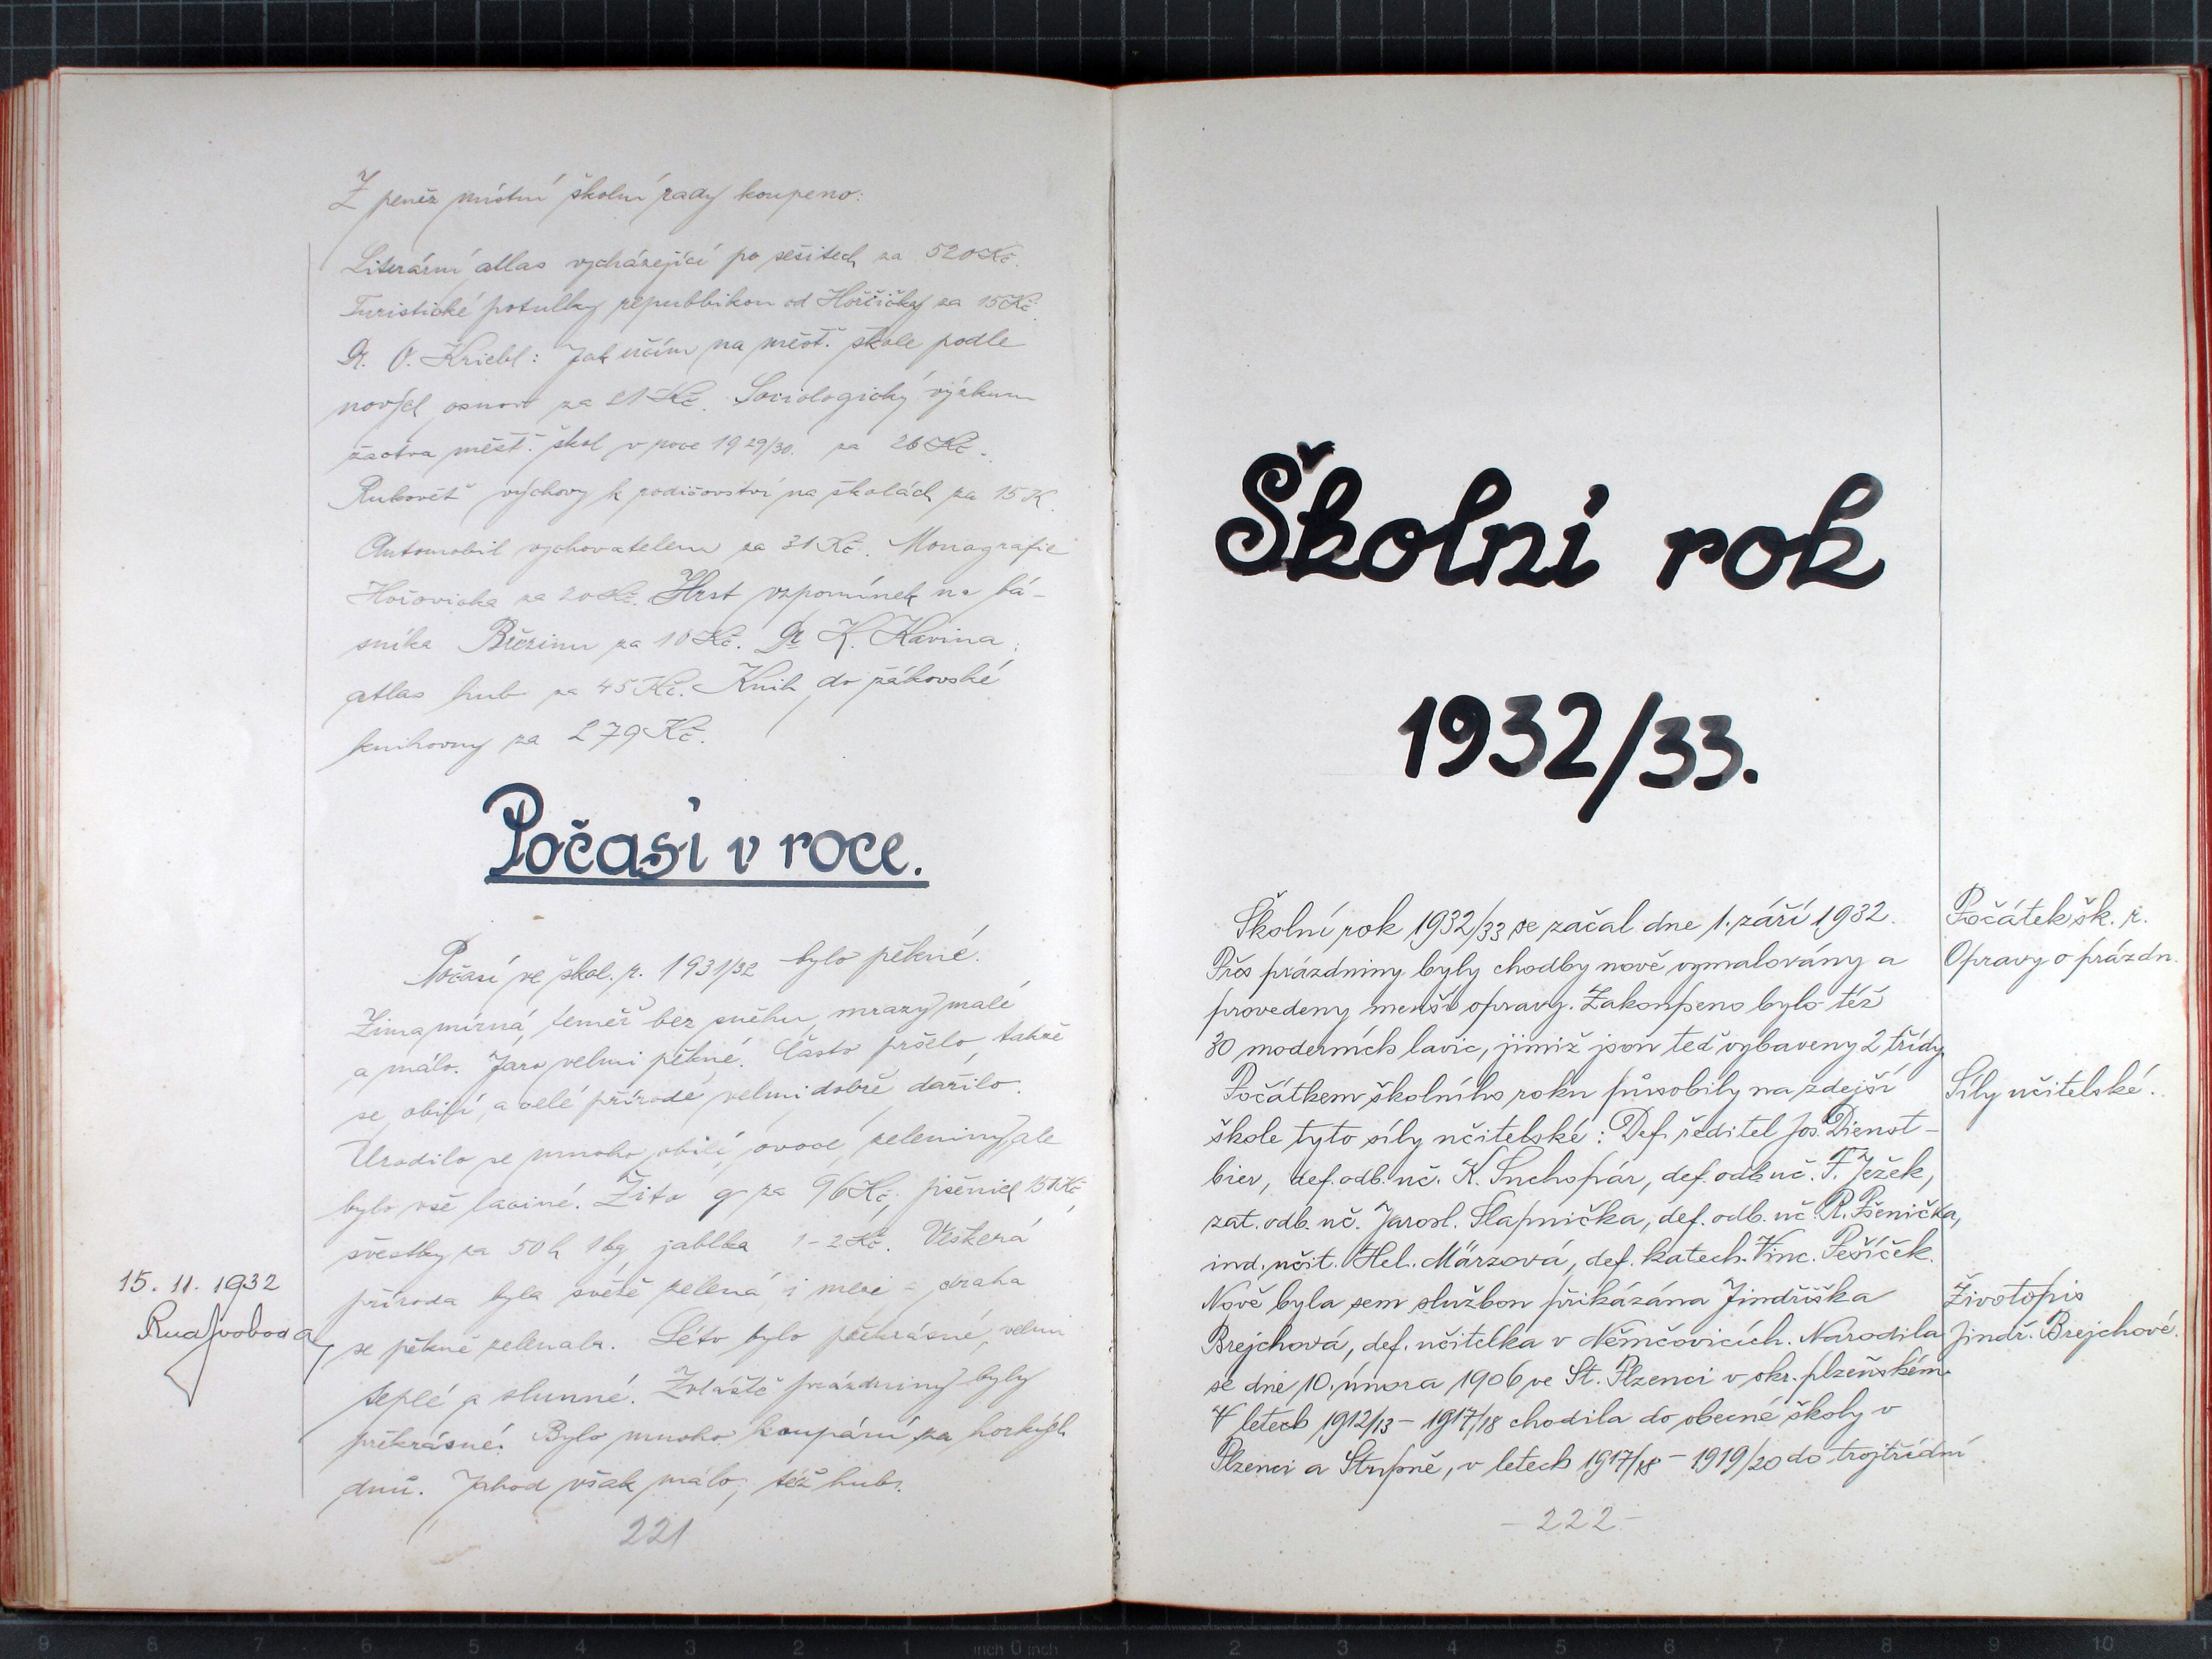 Z peněz místní školní rady koupeno:
Literární atlas vycházející po sešitech za 520 Kč.
Turistické potulky republikou od Hořčičky za 15 Kč.
Dr. O. Kriebl: Jak učím na měšť. škole podle
nových osnov za 21 Kč. Sociologický výzkum
žactva měšť. škol v roce 1929/30. za 26 Kč.
Rukověť výchovy k rodičovství na školách za 15 K.
Automobil vychovatelem za 31 Kč. Monografie
Hořovicka za 20 Kč. Hrst vzpomínek na bá-
sníka Březinu za 10 Kč. Dr K. Kavina:
atlas hub za 45 Kč. Knih do žákovské
knihovny za 279 Kč.
Počasí v roce.
Počasí ve škol. r. 1931/32 bylo pěkné.
Zima mírná, téměř bez sněhu, mrazy malé
a málo. Jaro velmi pěkné. Často pršelo, takže
se obilí a celé přírodě velmi dobře dařilo.
Urodilo se mnoho obilí, ovoce, zeleniny, ale
bylo vše laciné. Žito q za 96 Kč, pšenice 151 Kč,
švestky za 50 h 1 kg, jablka 1-2 Kč. Veškerá
příroda byla svěže zelená, i meze - draha
se pěkně zelenala. Léto bylo překrásné, velmi
teplé a slunné. Zvláště prázdniny byly
překrásné. Bylo mnoho koupání za horkých
dnů. Jahod však málo, též hub.
15. 11. 1932
Rud Svoboda
221
Školní rok
1932/33.
Školní rok 1932/33 se začal dne 1. září 1932.
Počátek šk. r.
Přes prázdniny byly chodby nově vymalovány a
Opravy o prázdn.
provedeny menší opravy. Zakoupeno bylo též
30 moderních lavic, jimiž jsou teď vybaveny 2 třídy.
Počátkem školního roku působily na zdejší
Síly učitelské.
škole tyto síly učitelské: Def. ředitel Jos. Dienst-
bier, def. odb. uč. K. Suchopár, def. odb. uč. F. Ježek,
zat. odb. uč. Jarosl. Slapnička, def. odb. uč. R. Pšenička,
ind. učit. Hel. Märzová, def. katech. Vinc. Pešíček.
Nově byla sem službou přikázána Jindřiška
Životopis
Brejchová, def. učitelka v Němčovicích. Narodila
Jindř. Brejchové.
se dne 10. února 1906 ve St. Plzenci v okr. plzeňském.
V letech 1912/13 - 1917/18 chodila do obecné školy v
Plzenci a Strupně, v letech 1917/18 - 1919/20 do trojtřídní
- 222 -